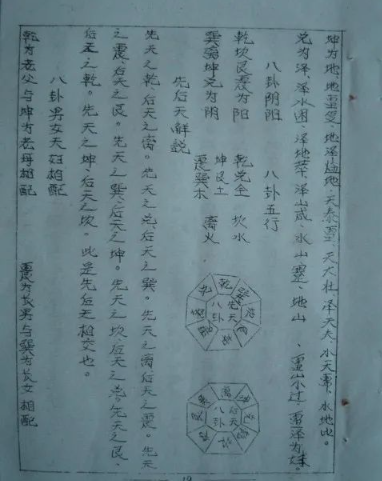 坤为地、地雷复、地泽临、地天泰、雷天大壮、泽天夬、水天需、水地比。
兑为泽、泽水困、泽地萃、泽山咸、水山蹇、地山、雷山小过、雷泽为妹。
八卦阴阳
八卦五行
乾坎艮震为阳
乾兑金
坎水
巽离坤兑为阴
坤艮土
震巽木
离火
先后天解說
先天之乾后天之离。先天之兑后天之巽。先天之离后天之震。先天
之震后天之艮。先天之巽后天之坤。先天之坎后天之兑。先天之艮、
后天之乾。先天之坤、后天之坎。此是先后天相交也。
八卦男女夫妇相配
乾为老父与坤为老母相配
震为长男与巽为长女相配
先天
八卦
后天
八卦
19